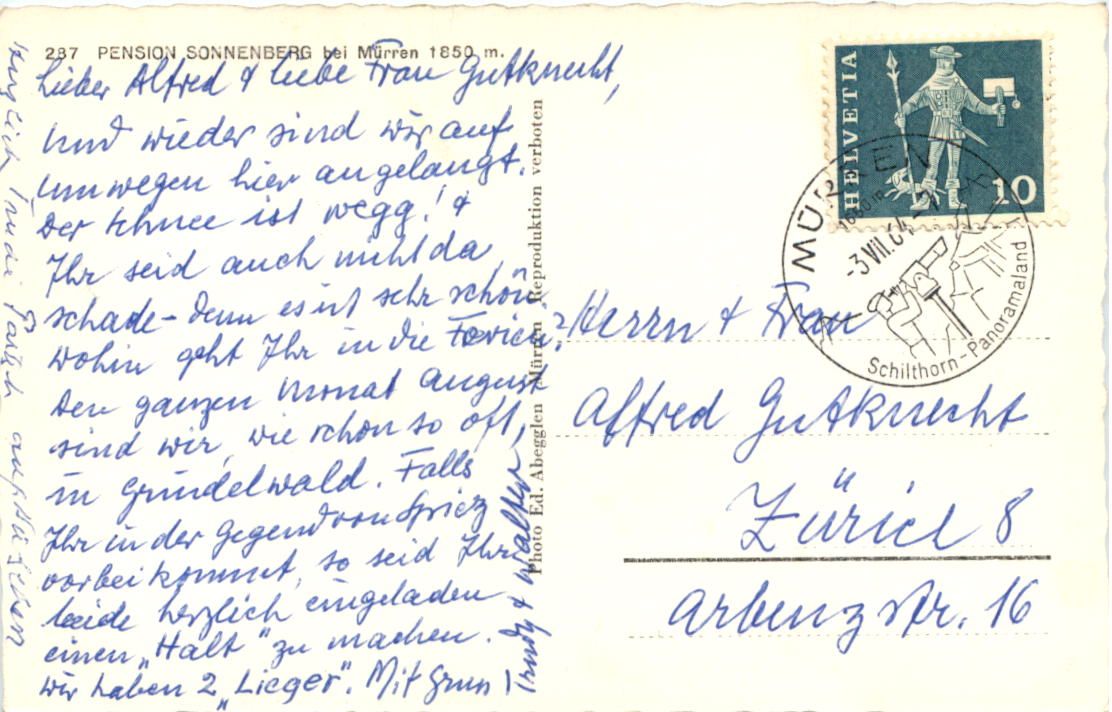 287 PENSION SONNENBERG bei Mürren 1850 m.
Lieber Alfred & liebe Frau Gutknecht,
Und wieder sind wir auf
Umwegen hier angelangt.
Der Schnee ist wegg! &
Ihr seid auch nicht da,
schade - denn es ist sehr schön.
Wohin geht Ihr in die Ferien?
Den ganzen Monat August
sind wir, wie schon so oft,
in Grindelwald. Falls
Ihr in der Gegend von Spiez
vorbeikommt, so seid Ihr
beide herzlich eingeladen
einen „Halt" zu machen.
Wir haben 2 „Lieger". Mit Gruss
Trudy & Walter
Photo Ed. Abegglen Mürren Reproduktion verboten
HELVETIA
10
MÜRREN
1650 m
-3.VII.64-
Schilthorn-Panoramaland
Herrn & Frau
Alfred Gutknecht
Zürich 8
Arbenzstr. 16